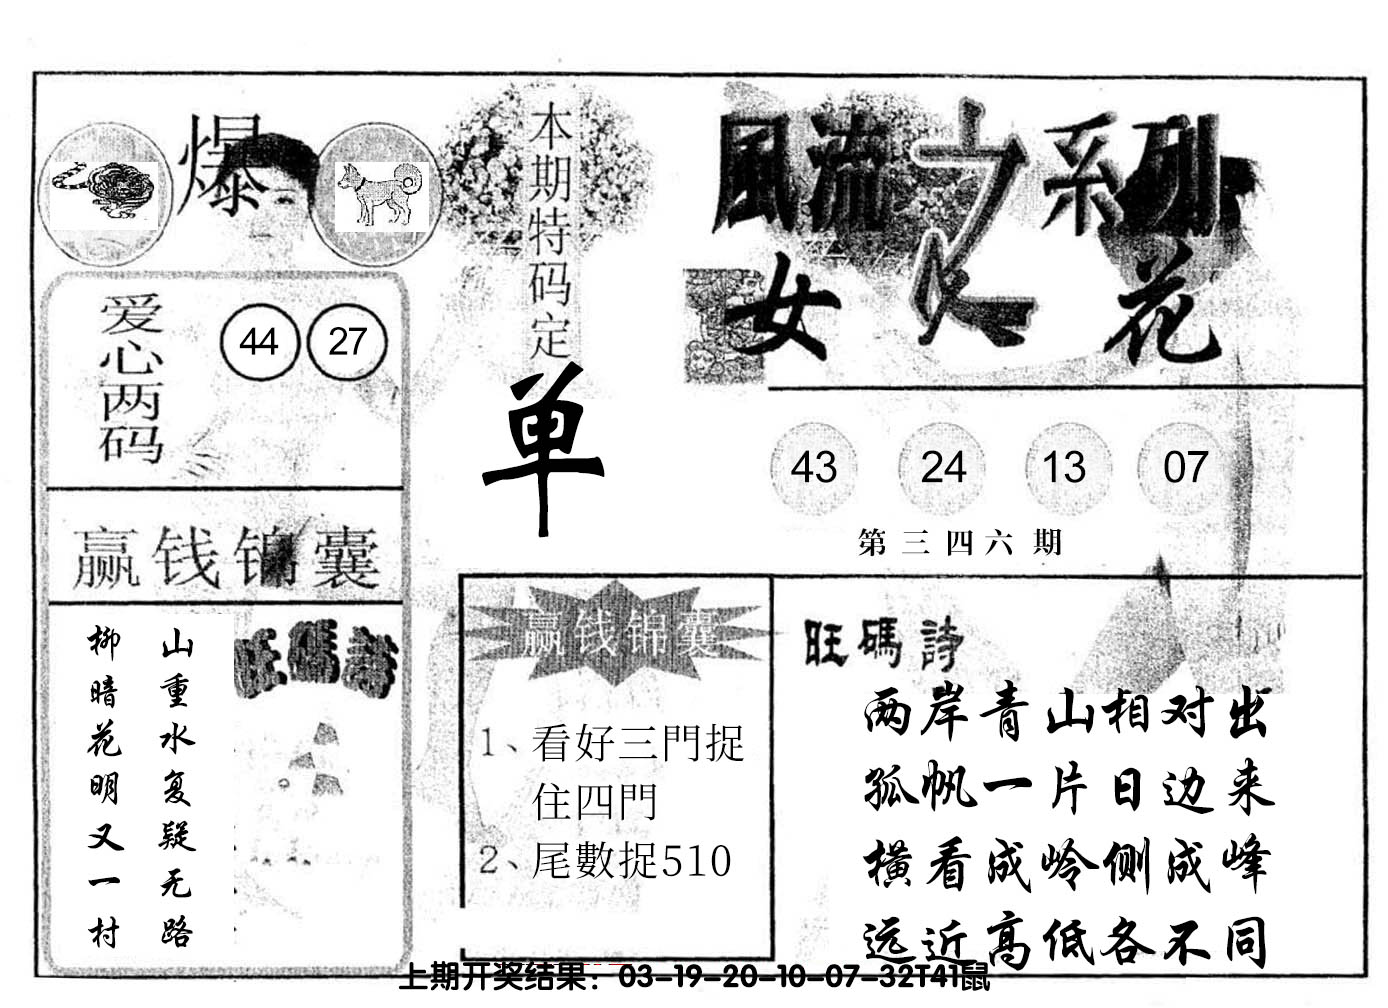 爆
本期特码定
单
風流之系列
女人花
爱心两码
44 27
43 24 13 07
第三四六期
赢钱锦囊
山重水复疑无路
柳暗花明又一村
旺碼詩
赢钱锦囊
1、看好三門捉
住四門
2、尾數捉510
旺碼詩
两岸青山相对出
孤帆一片日边来
横看成岭侧成峰
远近高低各不同
上期开奖结果：03-19-20-10-07-32T41鼠